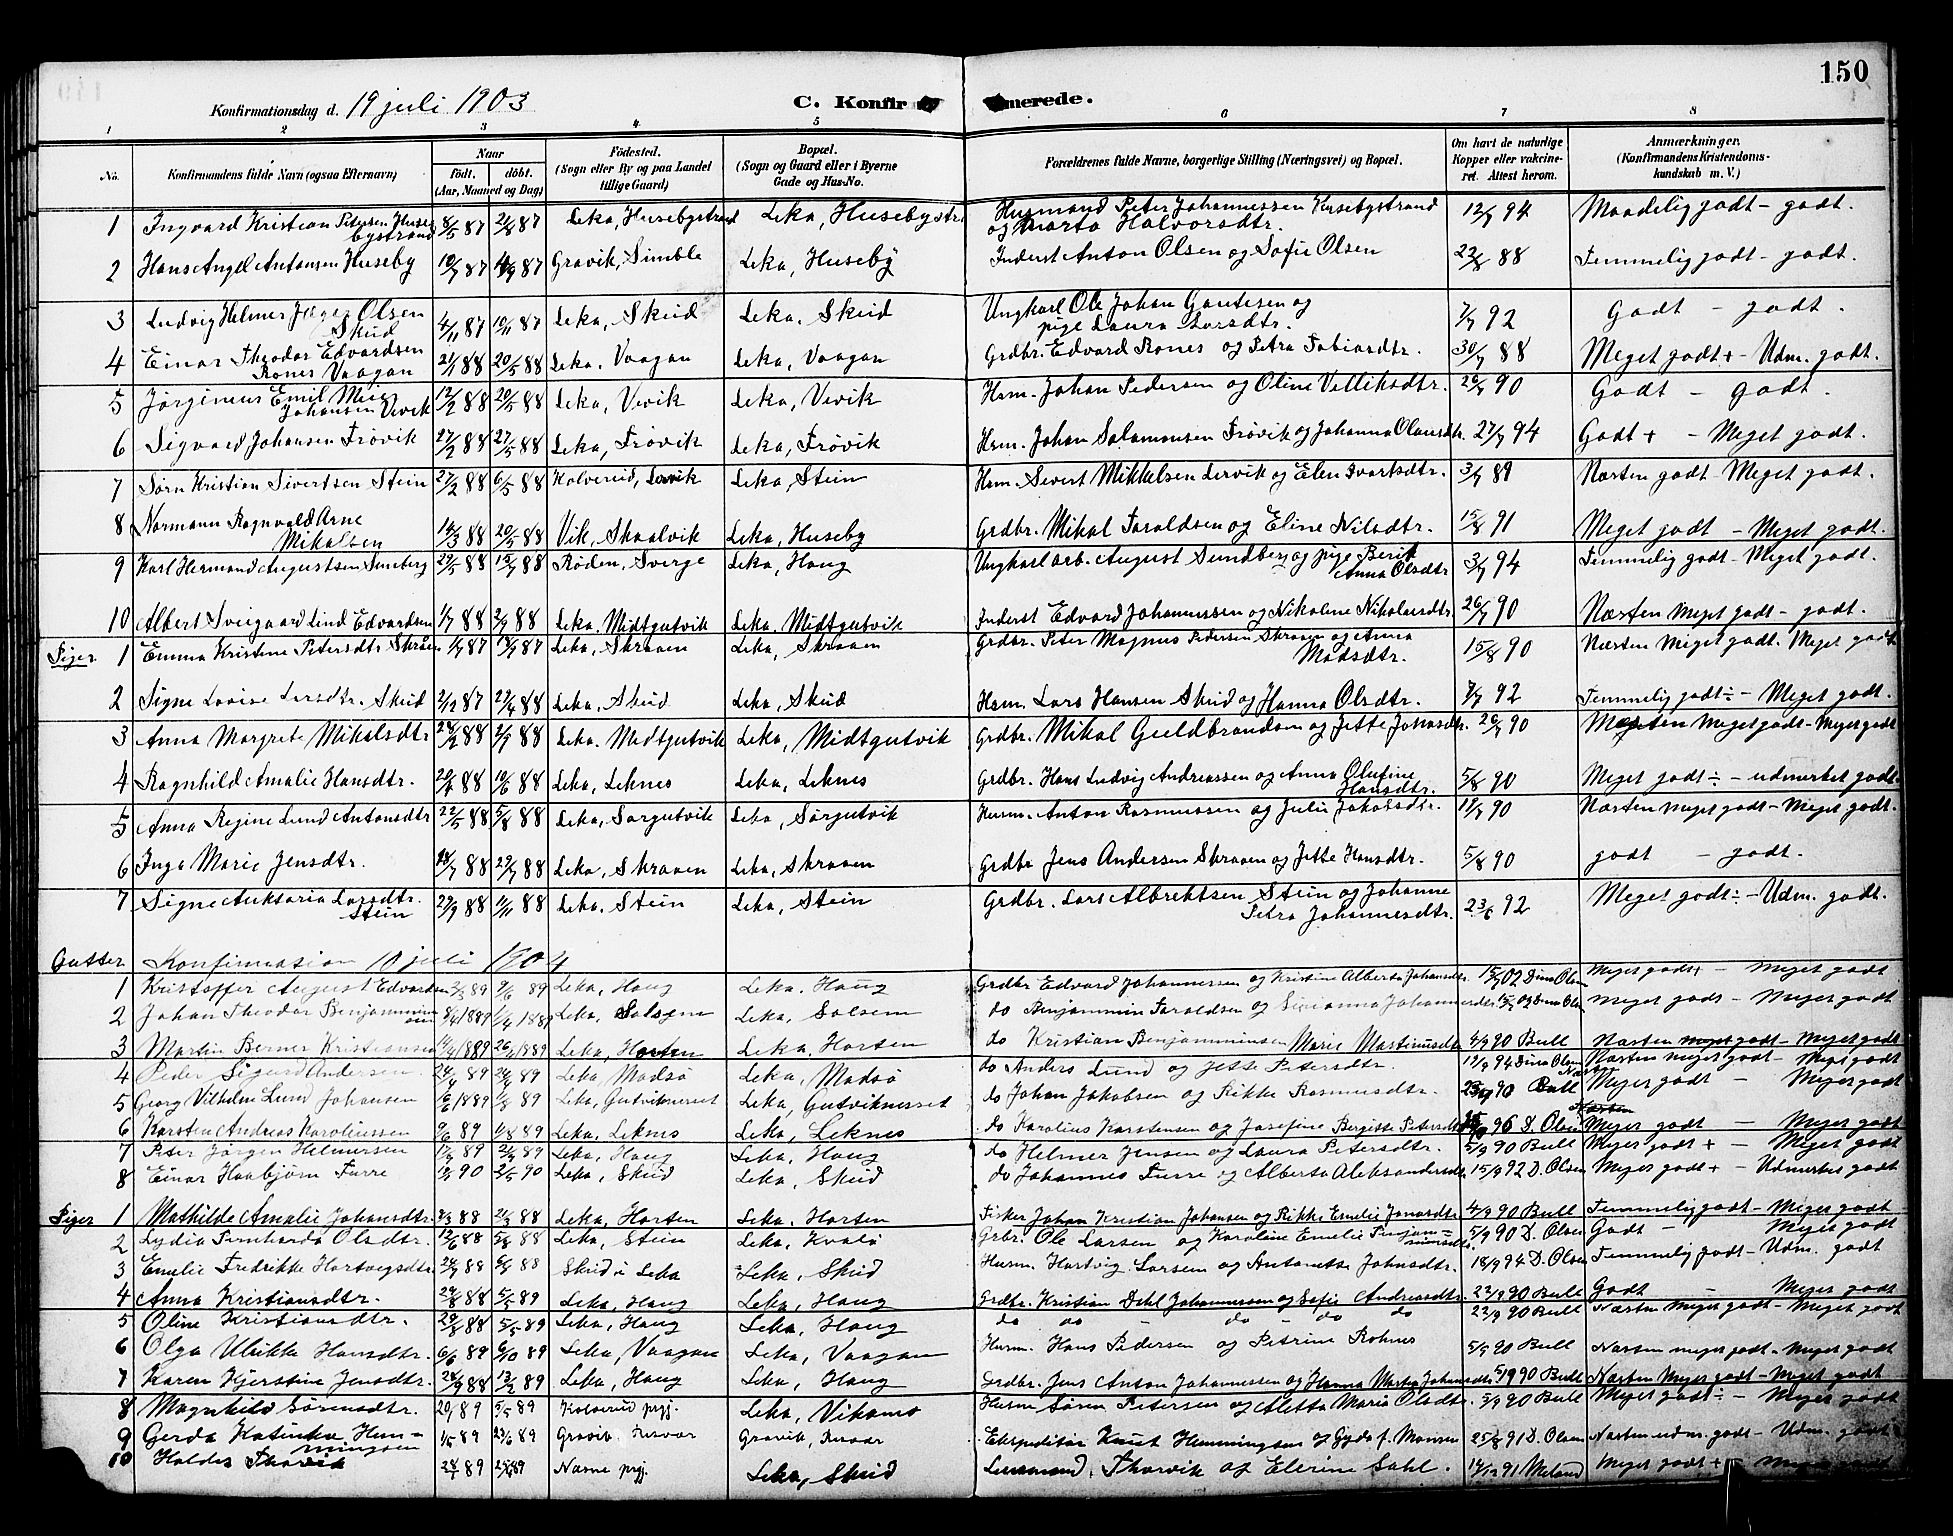 150
Konfirmationsdag d. 19 juli 1903 C. Konfirmerede.
1 2 3 4 5 6 7 8
No. Konfirmandens fulde Navn (ogsaa Efternavn) Naar født. døbt. (Aar, Maaned og Dag) Fødested. (Sogn eller By og paa Landet tillige Gaard) Bopæl. (Sogn og Gaard eller i Byerne Gade og Hus-No. Forældrenes fulde Navne, borgerlige Stilling (Næringsvei) og Bopæl. Om havt de naturlige Kopper eller vaccineret. Attest herom. Anmærkninger. (Konfirmandens Kristendomskundskab m. V.)
1 Ingvard Kristian Petersen Husebystrand 8/5 87 87 Leka, Husebystrand Leka, Husebystr. Husmand Peter Johannessen Husebystrand og Marta Halvorsdtr. 12/7 94 Maadelig godt - godt.
2 Hans Angel Antonsen Huseby 10/7 87 87 Gravik, Simble Leka, Huseby Inderst Anton Olsen og Sofie Olsen 23/8 88 Temmelig godt - godt.
3 Ludvig Helmer Olsen Skud 4/11 87 10/11 87 Leka, Skud Leka, Skud Ungkarl Ole Johan Gautesen og pige Laura Larsdtr. 7/7 92 Godt - godt.
4 Einar Theodor Edvardsen Rones Vaagan 21/1 88 20/5 88 Leka, Vaagan Leka, Vaagan Grdbr. Edvard Rones og Petra Tobiasdtr. 30/7 88 Meget godt + - Udm. godt.
5 Jørginius Emil Johansen Vivik 12/2 88 20/5 88 Leka, Vivik Leka, Vivik Hsm. Johan Pedersen og Oline Velliksdtr. 26/7 90 Godt - godt.
6 Sigvard Johansen Frøvik 27/2 88 27/5 88 Leka, Frøvik Leka, Frøvik Hsm. Johan Salamonsen Frøvik og Johanna Olausdtr. 27/7 94 Godt + - Meget godt.
7 Sørn Kristian Sivertsen Stein 27/2 88 6/5 88 Kolvereid, Lervik Leka, Stein Hsm. Sivert Mikkelsen Lervik og Elen Ivarsdtr. 3/7 89 Næsten godt - Meget godt.
8 Normann Ragnvald Arne Mikalsen 14/3 88 20/5 88 Vik, Skaalvik Leka, Huseby Grdbr. Mikal Taraldsen og Eline Nilsdtr. 15/8 91 Meget godt - Meget godt.
9 Karl Hermand Augustsen Sunberg 29/5 88 15/7 88 Røden, Sverge Leka, Haug Ungkarl arb. August Sundberg og pige Berit Anna Olsdtr 3/7 94 Temmelig godt - Meget godt.
10 Albert Sveigaard Lind Edvardsen 1/7 88 2/9 88 Leka. Midtgutvik Leka. Midtgutvik Inderst Edvard Johannessen og Nikoline Nikolaisdtr. 26/7 90 Næsten meget godt - godt.
Piger 1 Emma Kristine Petersdtr Skraaen 1/7 87 13/9 87 Leka, Skraaen Leka, Skraaen Grdbr. Peter Magnus Pedersen Skraaen og Anna Madsdtr. 15/8 90 Næsten Meget godt. Meget godt
2 Signe Lovise Larsdtr. Skud 2/12 87 29/4 88 Leka, Skud Leka, Skud Hsm. Lars Hansen Skud og Hanna Olsdtr. 7/7 92 Temmelig godt ÷ - Meget godt.
3 Anna Margrete Mikalsdtr 24/2 88 2/7 88 Leka. Midtgutvik Leka, Midtgutvik Grdbr. Mikal Guldbrandsen og Jette Jonasdtr. 26/7 90 Næsten Meget godt - Meget godt
4 Ragnhild Amalie Hansdtr. 20/4 88 10/6 88 Leka, Leknes Leka, Leknes Grdbr. Hans Ludvig Andreassen og Anna Olufine Hansdtr. 5/8 90 Meget godt ÷ - udmerket godt
5 Anna Regine Lund Antonsdtr 22/5 88 5/8 88 Leka, Sørgutvik Leka, Sørgutvik Husm. Anton Rasmussen og Julie Jakobsdtr. 17/7 90 Næsten meget godt - Meget godt.
6 Inga Marie Jensdtr. 18/7 88 29/7 88 Leka, Skraaen Leka, Skraaen Grdbr Jens Andersen Skraaen og Jette Hansdtr. 5/8 90 godt - godt.
7 Signe Auksaria Larsdtr. Stein 29/9 88 11/11 88 Leka, Stein Leka, Stein Grdbr. Lars Albrektsen Stein og Johanne Petra Johannesdtr. 23/6 92 Meget godt ÷ - Udm. godt.
Gutter Konfirmation 10 juli 1904
1 Kristoffer August Edvardsen 3/3 89 9/6 89 Leka, Haug Leka, Haug Grdbr Edvard Johannessen og Kristine Alberta Johansdtr 15/7 02 Dina Olsen Meget godt + - Meget godt
2 Johan Theodor Benjaminsen 1889 1889 Leka, Solsem Leka, Solsem do Benjammin Taraldsen og Johannesdtr 15/7 02 Dina Olsen Meget godt - Meget godt
3 Martin Berner Kristiansen 1889 26/ 1889 Leka, Horten Leka, Horten do Kristian Benjamminsen Marie Martinusdtr 4/9 90 Bull Næsten meget godt - Meget godt
4 Peder Sigurd Andersen 24/4 89 89 Leka, Madsø Leka, Madsø do Anders Lund og Jette Petersdtr. 17/9 94 Dina Olsen Næsten meget godt - Meget godt
5 Georg Vilhelm Lund Johansen 6/6 1889 89 Leka, Gutviknesset Leka, Gutviknesset do Johan Jakobsen og Rikke Rasmusdtr. 90 Bull Meget godt - Meget godt
6 Karsten Andreas Karoliussen 9/6 89 4/8 89 Leka, Leknes Leka, Leknes do Karolius Karstensen og Josefine Bergitte Petersdtr 96 D. Olsen Næsten Meget godt - Meget godt
7 Peter Jørgen Helmersen 89 89 Leka, Haug Leka, Haug do Helmer Jensen og Laura Petersdtr. 5/9 90 Bull Meget godt + - Meget godt
8 Einar Haabjørn Furre 90 2/5 90 Leka, Skud Leka, Skud do Johannes Furre og Alberta Aleksandersdtr 15/9 92 D. Olsen Meget godt + - Udmerket godt
Piger 1 Mathilde Amalie Johansdtr. 88 88 Leka, Horten Leka, Horten Fisker Johan Kristian Johansen og Rikke Emelie Jonasdtr 4/9 90 Bull Temmelig godt - Meget godt
2 Lydia Olsdtr. 12/6 88 5/8 88 Leka, Stein Leka, Kvalø Grbr. Ole Larsen og Karoline Emelie Benjaminsdtr. 5/9 90 D. Olsen Godt - Meget godt
3 Emelie Fredrikke Hartvigsdtr 88 88 Skud i Leka Leka, Skud Husm. Hartvig Larsen og Antonette Johnsdtr. 18/9 94 D. Olsen Temmelig godt - Udm. godt
4 Anna Kristiansdtr. 29/8 88 5/5 89 Leka, Haug Leka, Haug Grdbr. Kristian Dehl Johannessen og Sofie Andreasdtr. 22/9 90 Bull Godt - Meget godt
5 Oline Kristiansdtr. 29/8 88 5/5 89 Leka, Haug Leka, Haug do do - do - do do 22/9 90 Bull Næsten meget godt - Meget godt
6 Olga Ulrikke Hansdtr. 6/6 89 6/10 89 Leka, Vaagan Leka, Vaagan Husm. Hans Pedersen og Petrine Rohnes 5/9 90 Bull Næsten meget godt - Meget godt
7 Karen Kjerstine Jensdtr. 28/9 88 13/2 89 Leka, Haug Leka, Haug Grdbr. Jens Anton Johannessen og Hanna Marta Johansdtr. 5/9 90 Bull Næsten Meget godt - Meget godt
8 Magnhild Sørensdtr. 20/ 89 5/5 89 Kolvereid prgj. Leka, Vikamo Husm Søren Petersen og Aletta Marie Olsdtr. 5/9 90 Bull Meget godt ÷ - Meget godt
9 Gerda Katinka Hemmingsen 89 23/6 89 Gravik, Risvær Gravik, Risvær Ekspeditør Knut Hemmingsen og Gyda f. Monsen 25/8 91 D. Olsen Næsten udm. godt - Udm. godt
10 Haldis Thorvik 89 89 Nærøe prgj. Leka, Skud Lensmand Thorvik og Elerine Dahl. 14/12 91 Meland Meget godt + - Meget godt